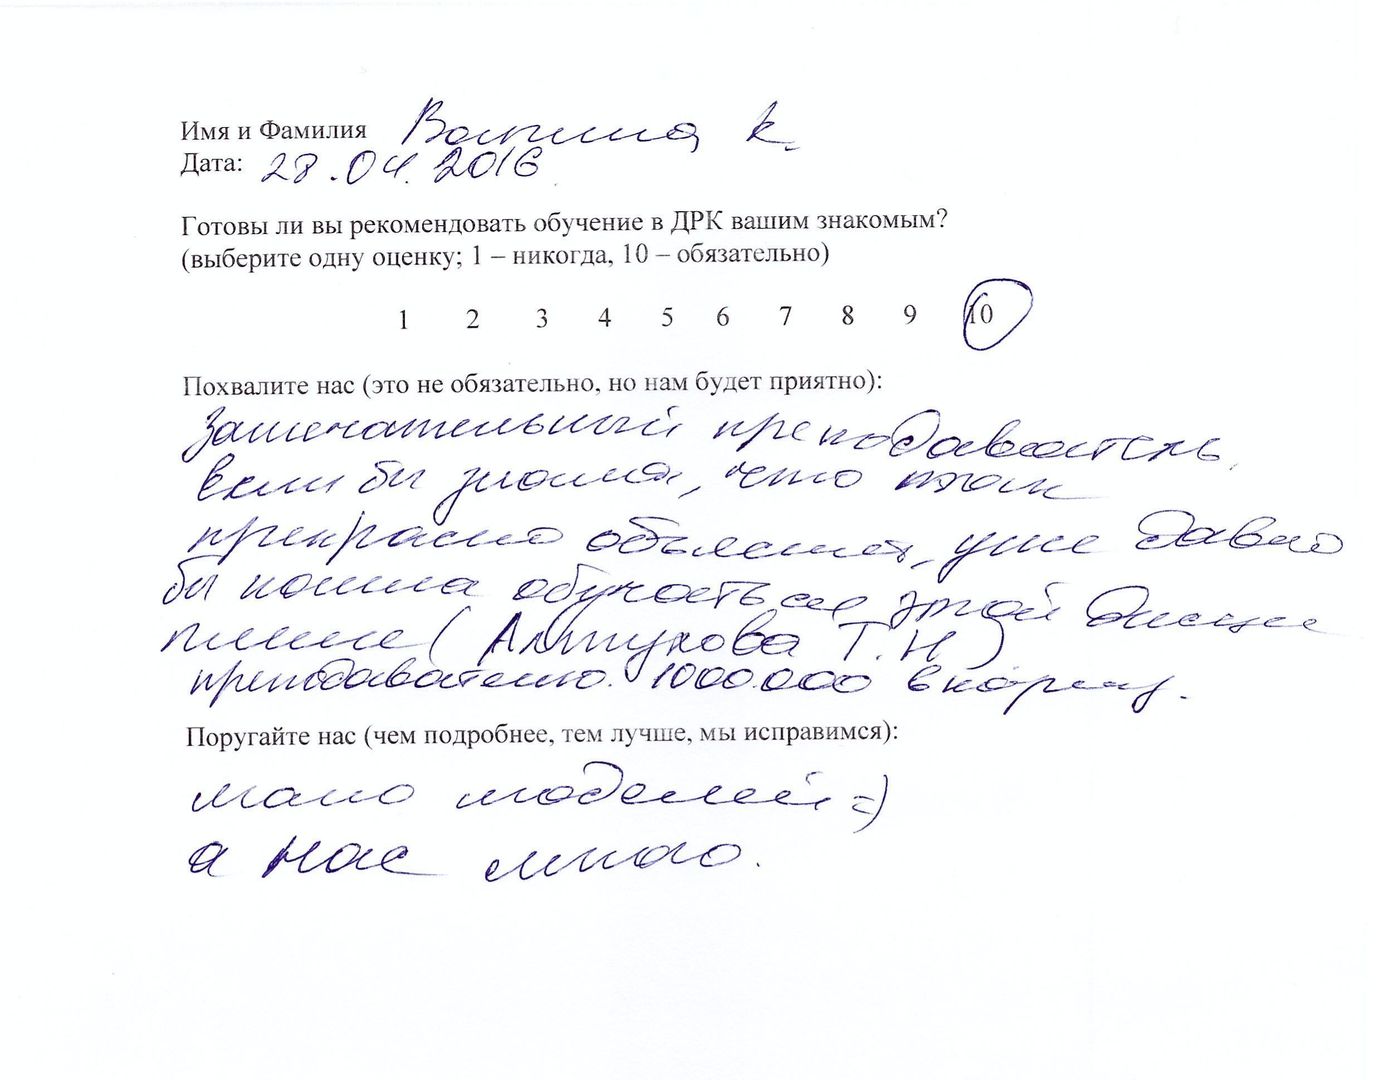 Имя и Фамилия К.
Дата: 28.04.2016
Готовы ли вы рекомендовать обучение в ДРК вашим знакомым?
(выберите одну оценку; 1 – никогда, 10 – обязательно)
1 2 3 4 5 6 7 8 9 10
Похвалите нас (это не обязательно, но нам будет приятно):
Замечательный преподаватель,
если бы знала, что так
прекрасно объясняет, уже давно
бы пошла обучаться этой дисци
плине (Алтухова Т.Н)
преподавателю. 1000.000 в карму.
Поругайте нас (чем подробнее, тем лучше, мы исправимся):
мало моделей =)
а нас много.